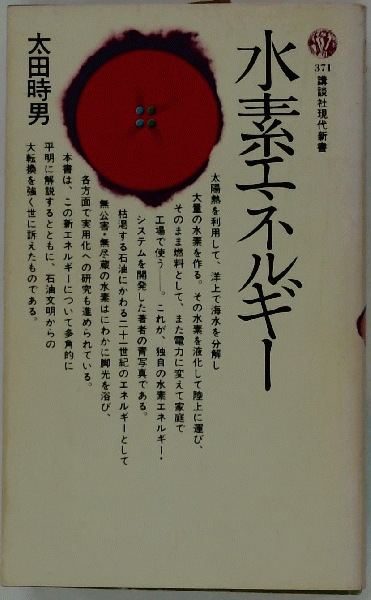 371
講談社現代新書
水素エネルギー
太田時男
太陽熱を利用して、洋上で海水を分解し
大量の水素を作る。その水素を液化して陸上に運び、
そのまま燃料として、また電力に変えて家庭で
工場で使う——。これが、独自の水素エネルギー・
システムを開発した著者の青写真である。
枯渇する石油にかわる二十一世紀のエネルギーとして
無公害・無尽蔵の水素はにわかに脚光を浴び、
各方面で実用化への研究も進められている。
本書は、この新エネルギーについて多角的に
平明に解説するとともに、石油文明からの
大転換を強く世に訴えたものである。